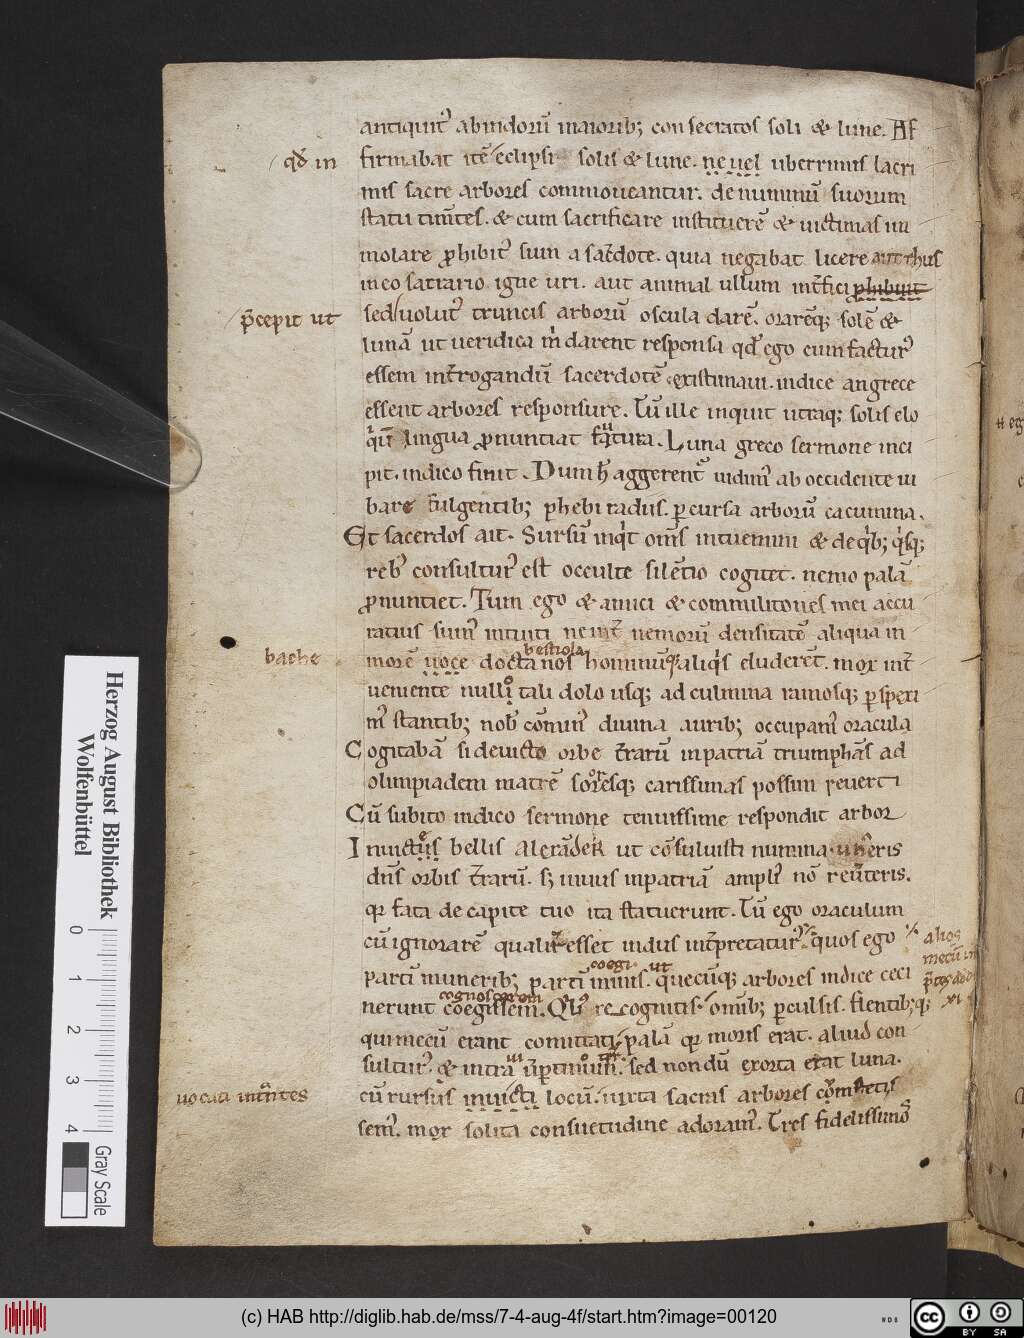 antiquit᷒ abindorū maioribꝫ consecratos soli & lune. Af
qd̄ in firmabat itē eclipsi solis & lune. ne uel uberrimis lacri
mis sacre arbores commoueantur. de numinū suorum
statu tim̄tes. & cum sacrificare instituerē & uictimas im
molare ꝓhibit᷒ sum a sac̄dote. quia negabat licere aut thus
in eo sacrario igne uri. aut animal ullum int̄fici ꝓhibuit
p̄cepit ut sed uolut᷒ truncis arborū oscula darē. orarēqꝫ solē &
lunā ut ueridica m̍ darent responsa qd̄ ego cum factur᷒
essem int̄rogandū sacerdotē existimaui. indice angrece
essent arbores responsure. Tū ille inquit utraqꝫ solis elo
quiū lingua ꝓnuntiat futura. Luna greco sermone inci
pit. indico finit. Dum h̄ aggerent᷒ uidim᷒ ab occidente iu
bare fulgentibꝫ phebi radiis. ꝑcursa arborū cacumina.
Et sacerdos ait. Sursū inqͥt om̄s intuemini & de qͥbꝫ qͥsqꝫ
reb᷒ consultur᷒ est occulte silētio cogitet. nemo palā
ꝓnuntiet. Tum ego & amici & commilitones mei accu
ratius sum᷒ intuiti ne int̄ nemorū densitatē aliqua in
bache morē uoce docta nos bestiola hominūqꝫ aliqͥs eluderet. mox int̄
ueniente nullo tali dolo usqꝫ ad culmina ramosqꝫ ꝑspexi
m᷒ stantibꝫ nob᷒ cōmin᷒ diuina auribꝫ occupam᷒ oracula
Cogitabā si deuicto orbe t̄rarū in patriā triumphās ad
olimpiadem matrē soroesqꝫ carissimas possim reuerti
Cū subito indico sermone tenuissime respondit arbor
Inuictis bellis Alexāder ut cōsuluisti numina
dn̄s orbis t̄rarū. sꝫ uiuus in patriā ampli᷒ nō reuteris.
qꝛ fata de capite tuo ita statuerunt. Tū ego oraculum
cū ignorarē qualit̄ esset indus int̄pretatur᷒ quos ego alios
mecū
parti muneribꝫ ꝑ parti minis. coegi. ut quecūqꝫ arbores indice ceci
nerunt cognoscerem coegissem. Qͥb᷒ recognitis omībꝫ ꝑculsis. flentibꝫqꝫ
qui mecū erant comitati palā qꝛ moris erat. aliud con
sultur᷒. & intra sed nondū exorta erat luna.
uocati int̄ntes cū rursus inuicti locū. iuxta sacras arbores
sem᷒. mox solita consuetudine adoram᷒. Tres fidelissimos
Herzog August Bibliothek
Wolfenbüttel
0 1 2 3 4
Gray Scale
(c) HAB http://diglib.hab.de/mss/7-4-aug-4f/start.htm?image=00120
cc BY SA